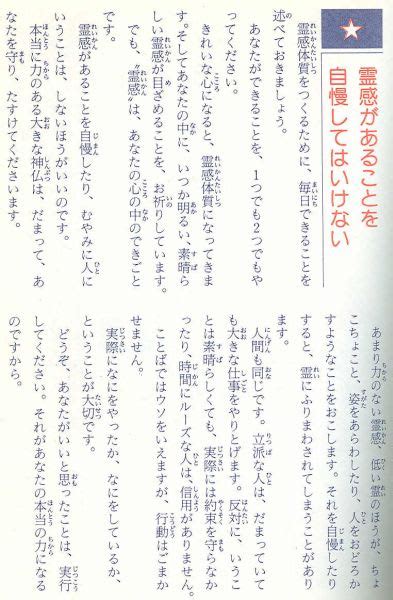 霊感があることを
自慢してはいけない
霊感体質をつくるために、毎日できることを
述べておきましょう。
あなたができることを、1つでも2つでもや
ってください。
きれいな心になると、霊感体質になってきま
す。そしてあなたの中に、いつか明るい、素晴ら
しい霊感が目ざめることを、お祈りしています。
でも、〝霊感〟は、あなたの心の中のできごと
です。
霊感があることを自慢したり、むやみに人に
いうことは、しないほうがいいのです。
本当に力のある大きな神仏は、だまって、あ
なたを守り、たすけてくださいます。
あまり力のない霊感、低い霊のほうが、ちょ
こちょこと、姿をあらわしたり、人をおどろか
すようなことをおこします。それを自慢したり
すると、霊にふりまわされてしまうことがあり
ます。
人間も同じです。立派な人は、だまっていて
も大きな仕事をやりとげます。反対に、いうこ
とは素晴らしくても、実際には約束を守らなか
ったり、時間にルーズな人は、信用がありません。
ことばではウソをいえますが、行動はごまか
せません。
実際になにをやったか、なにをしているか、
ということが大切です。
どうぞ、あなたがいいと思ったことは、実行
してください。それがあなたの本当の力になる
のですから。